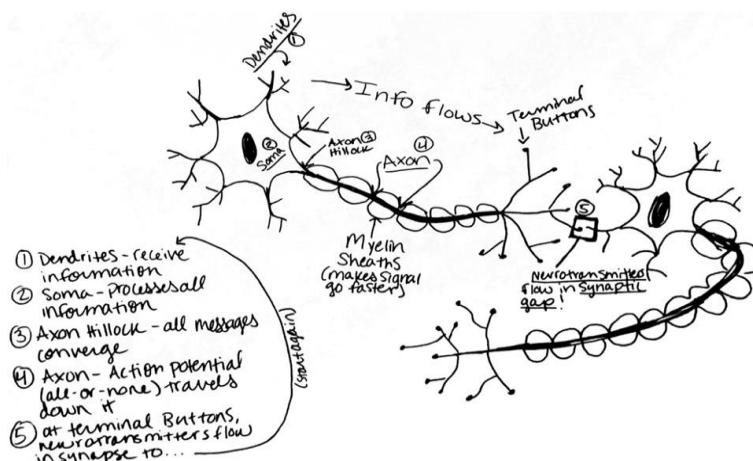 Dendrites ①
→ Info flows →
Terminal
Buttons
② Soma
Axon ③
Hillock
④
Axon
⑤
Myelin
Sheaths
(makes signal
go faster)
Neurotransmitters
flow in synaptic
gap!
① Dendrites - receive
information
② Soma - Processes all
information
③ Axon Hillock - all messages
converge
④ Axon - Action potential
(all-or-none) travels
down it
⑤ at terminal Buttons,
neurotransmitters flow
in synapse to...
(start again)